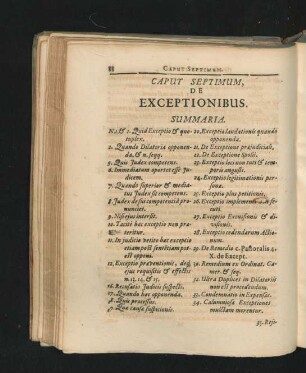 88 CAPUT SEPTIMUM.
CAPUT SEPTIMUM,
DE
EXCEPTIONIBUS.
SUMMARIA.
N. 1. & 2. Quid Exceptio & quotuplex.
3. Quando Dilatoria opponenda, & n. seqq.
5. Quis Judex competens.
6. Immediatum oportet esse Judicem.
7. Quando superior & mediatus Judex sit competens.
8 Judex de sua competentia pronunciat.
9. Nisi ejus intersit.
10. Tacitè hæc exceptio non præteritur.
11. In judiciis
etiam post
test opponi.
12. Exceptio præventionis, de ejus requisitis & effectu n. 13. 14. & 15.
16. Recusatio Judicis suspecti.
17. Quando hæc opponenda.
18. Quis processus.
19. Quæ causæ suspicionis.
20. Exceptio laudationis quando opponenda.
21. De Exceptione præjudiciali.
22. De Exceptione spolii.
23. Exceptio loci non tuti & temporis angusti.
24. Exceptio legitimationis personæ.
25. Exceptio plus petitionis.
26. Exceptio
27. Exceptio Excussionis & divisionis.
28. Exceptio
29. De Remedio c. Pastoralis 4. X. de Except.
30. Remedium ex Ordinat. Camer. & seq.
32. Ultra Duplices in Dilatoriis non est procedendum.
33. Condemnatio in Expensas.
34. Calumniosæ Exceptiones mulctam merentur.
35. Repe-